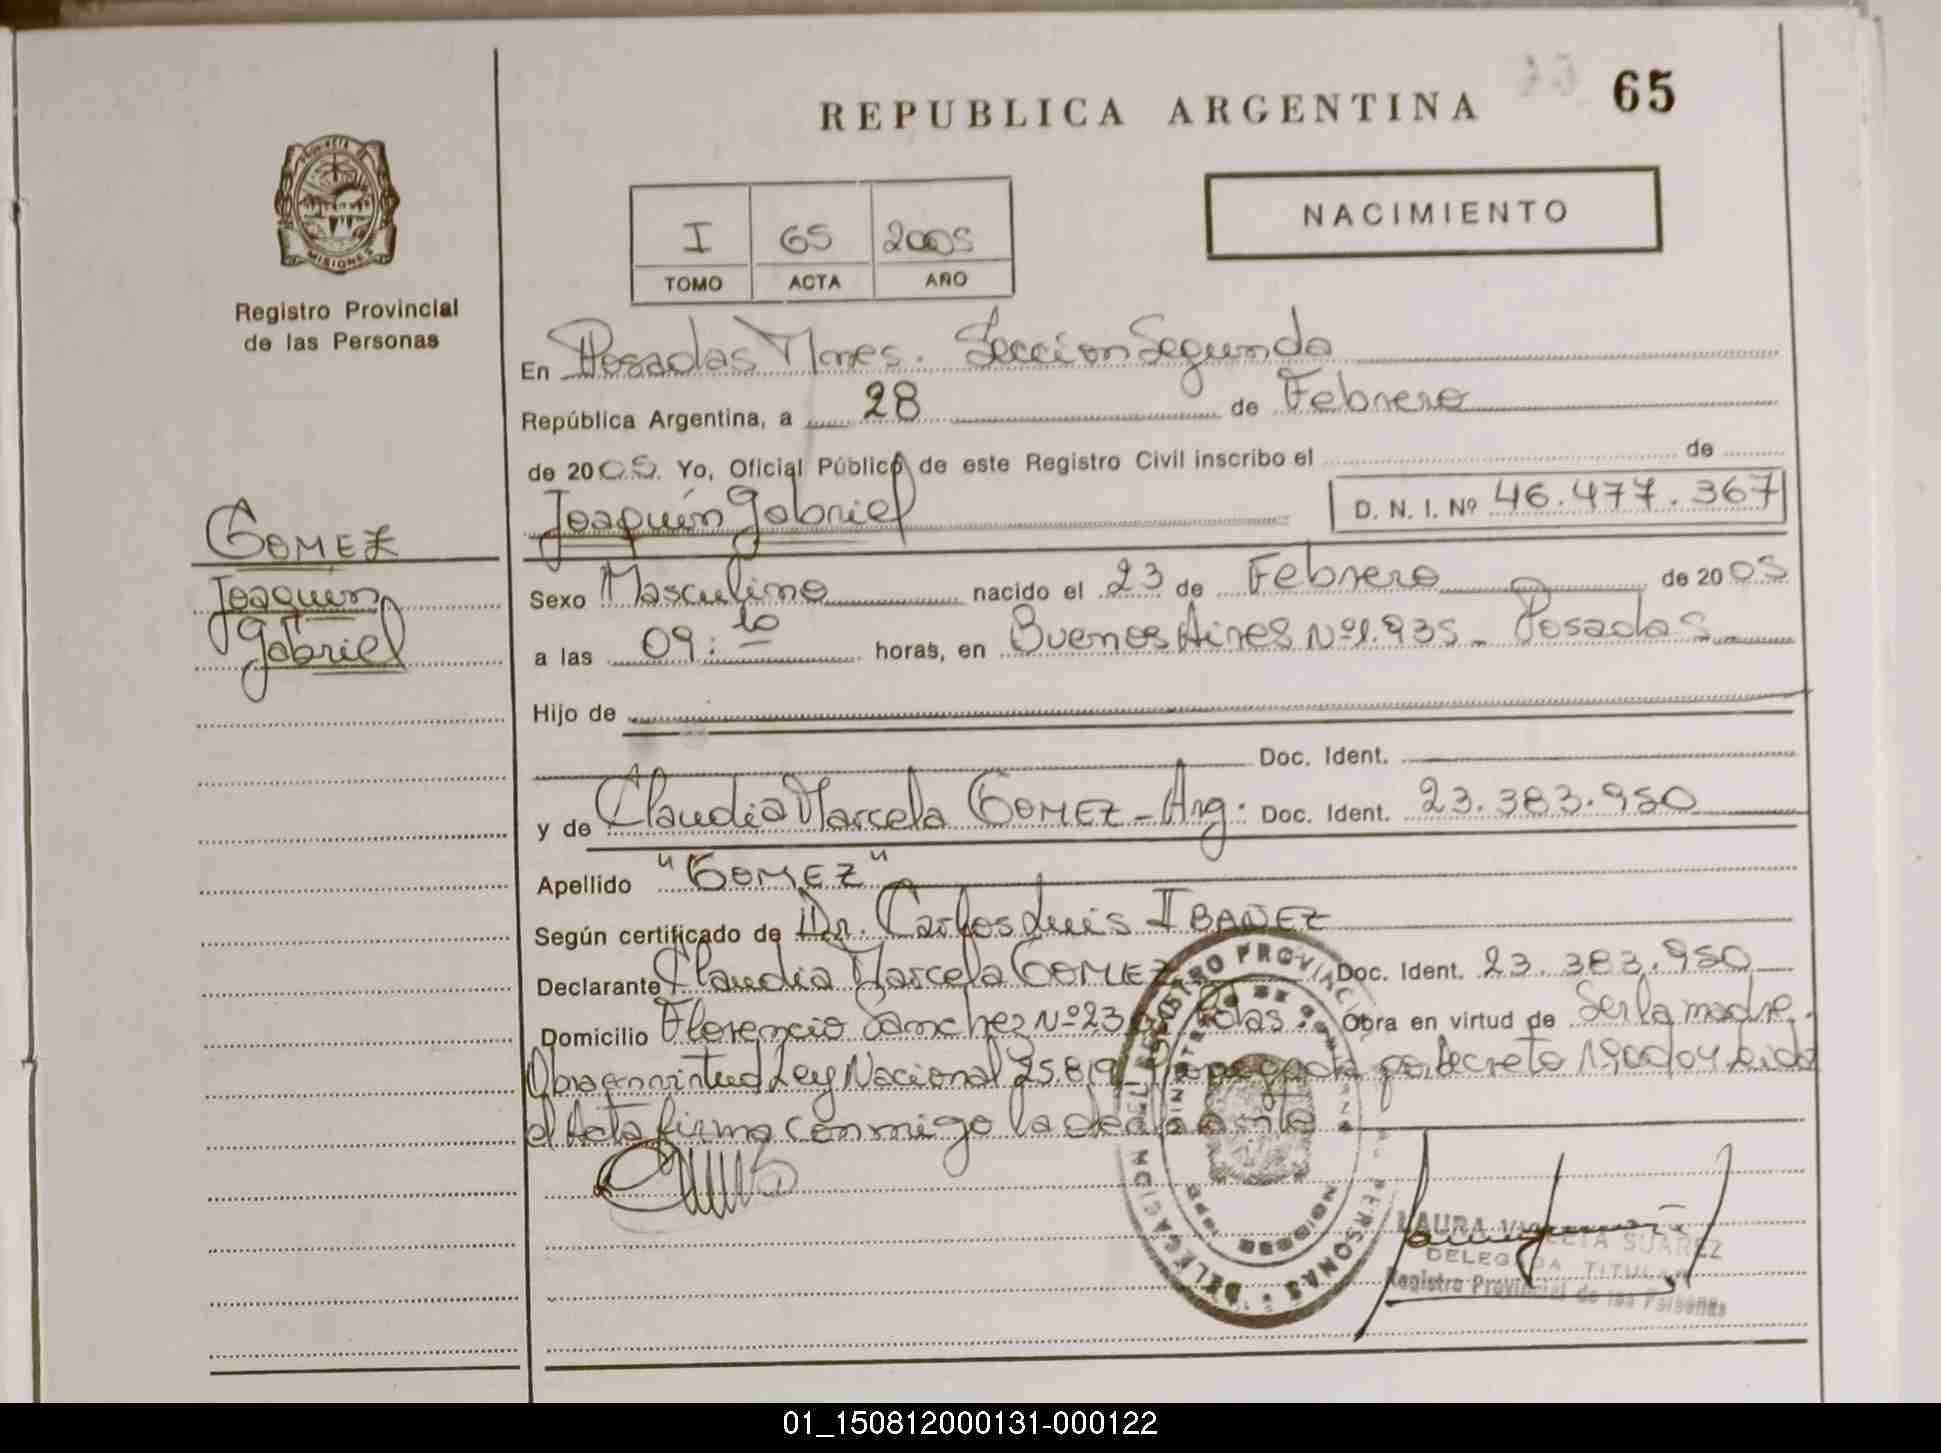 REPUBLICA ARGENTINA
65
PROVINCIA DE
MISIONES
Registro Provincial
de las Personas
I 65 2005
TOMO ACTA AÑO
NACIMIENTO
En Posadas Mnes. Sección Segunda
República Argentina, a 28 de Febrero
de 2005. Yo, Oficial Público de este Registro Civil inscribo el de
Joaquín Gabriel
D. N. I. Nº 46.477.367
GOMEZ
Joaquín
Gabriel
Sexo Masculino nacido el 23 de Febrero de 2005
a las 09:10 horas, en Buenos Aires Nº 1.935 - Posadas
Hijo de
Doc. Ident.
y de Claudia Marcela GOMEZ - Arg. Doc. Ident. 23.383.950
Apellido "GOMEZ"
Según certificado de Dr. Carlos Luis IBAÑEZ
Declarante Claudia Marcela GOMEZ Doc. Ident. 23.383.950
Domicilio Florencio Sanchez Nº 23 Pdas. Obra en virtud de Ser la madre.
Obra en virtud Ley Nacional 25.819 por Decreto 190/04 Leida
el Acta firma conmigo la declarante
DELEGACION DEL REGISTRO PROVINCIAL DE LAS PERSONAS
MINISTERIO DE GOBIERNO
MISIONES
LAURA SUAREZ
DELEGADA TITULAR
Registro Provincial de las Personas
01_150812000131-000122